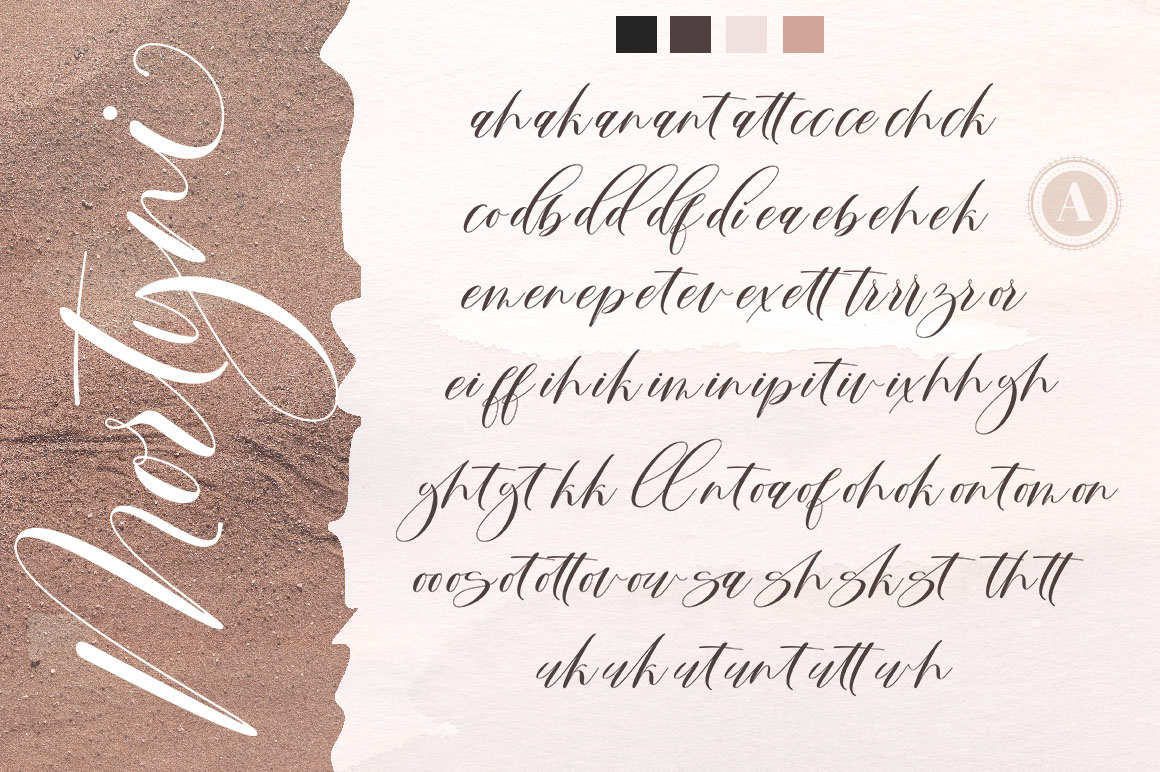 Mortymi
ah ak an ant att cc ce ch ck
A
co db dd df di ea eb eh ek
em en ep et ev ex ett tr rr zr or
ei ff ih ik im in ip it iv ix hh gh
ght gt kk ll nt oa of oh ok ont om on
oo os ot ott ov ow sa sh sk st th tt
uk uk ut unt utt wh